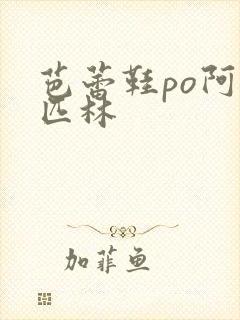 芭蕾鞋po阿
匹林
加菲鱼